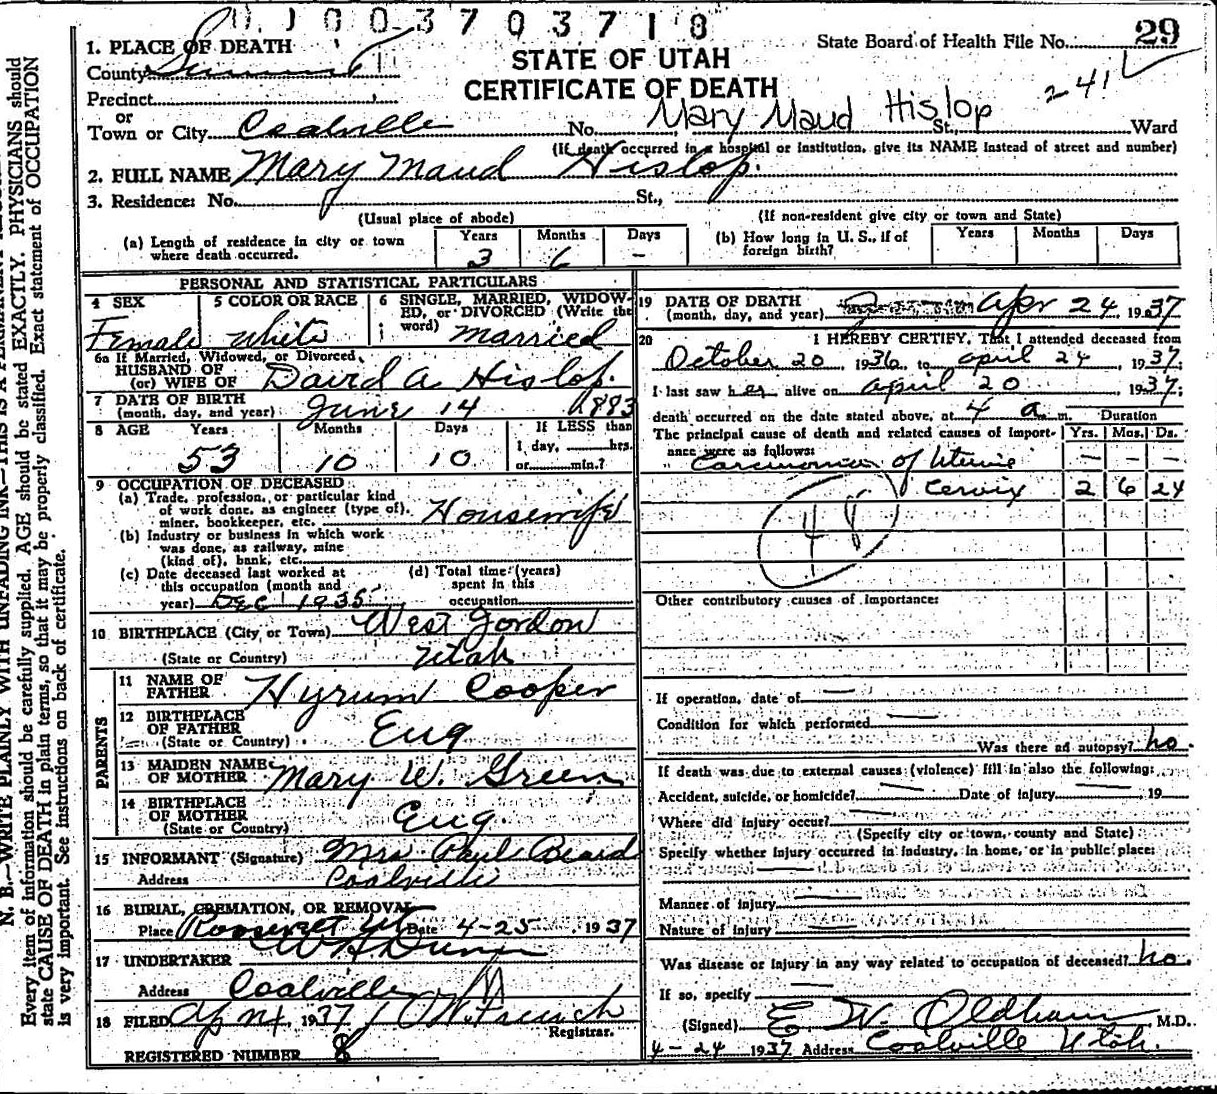 0 J 0 0 3 7 0 3 7 1 8
State Board of Health File No. 29
241
1. PLACE OF DEATH
STATE OF UTAH
CERTIFICATE OF DEATH
County Summit
Precinct
or
Town or City Coalville No. Mary Maud Hislop St., Ward
(If death occurred in a hospital or institution, give its NAME instead of street and number)
2. FULL NAME Mary Maud Hislop.
3. Residence: No. St.,
(Usual place of abode) (If non-resident give city or town and State)
(a) Length of residence in city or town where death occurred. Years 3 Months 6 Days -
(b) How long in U. S., if of foreign birth? Years Months Days
PERSONAL AND STATISTICAL PARTICULARS
4 SEX Female
5 COLOR OR RACE white
6 SINGLE, MARRIED, WIDOWED, or DIVORCED (Write the word) married
6a If Married, Widowed, or Divorced
HUSBAND OF
(or) WIFE OF David A Hislop.
7 DATE OF BIRTH
(month, day, and year) June 14 1883
8 AGE Years 53 Months 10 Days 10 If LESS than
1 day, hrs.
or min.?
9 OCCUPATION OF DECEASED
(a) Trade, profession, or particular kind
of work done, as engineer (type of),
miner, bookkeeper, etc. Housewife
(b) Industry or business in which work
was done, as railway, mine
(kind of), bank, etc.
(c) Date deceased last worked at
this occupation (month and
year) Dec 1935
(d) Total time (years)
spent in this
occupation
10 BIRTHPLACE (City or Town) West Jordon
(State or Country) Utah
PARENTS
11 NAME OF
FATHER Hyrum Cooper
12 BIRTHPLACE
OF FATHER
(State or Country) Eng
13 MAIDEN NAME
OF MOTHER Mary W. Green
14 BIRTHPLACE
OF MOTHER
(State or Country) Eng.
15 INFORMANT (Signature) Mrs Paul Beard
Address Coalville
16 BURIAL, CREMATION, OR REMOVAL
Place Roosevelt Ut Date 4-25 1937
17 UNDERTAKER W H Dunn
Address Coalville
18 FILED 1937
Registrar.
REGISTERED NUMBER 8
19 DATE OF DEATH
(month, day, and year) Apr 24 1937
20 I HEREBY CERTIFY, That I attended deceased from
October 20, 1936 to april 24, 1937
I last saw her alive on april 20 1937;
death occurred on the date stated above, at 4 a m. Duration
The principal cause of death and related causes of importance were as follows: Yrs. Mos. Ds.
Carcinoma of Uterine - - -
Cervix 2 6 24
48
Other contributory causes of importance:
If operation, date of —
Condition for which performed —
Was there an autopsy? no.
If death was due to external causes (violence) fill in also the following:
Accident, suicide, or homicide? — Date of injury — 19
Where did injury occur? —
(Specify city or town, county and State)
Specify whether injury occurred in industry, in home, or in public place:
—
Manner of injury —
Nature of injury —
Was disease or injury in any way related to occupation of deceased? no.
If so, specify —
(Signed) E. W. Oldham M.D.
4-24 1937 Address Coalville Utah.
N. B.—WRITE PLAINLY WITH UNFADING INK—THIS IS A PERMANENT
Every item of information should be carefully supplied. AGE should be stated EXACTLY. PHYSICIANS should
state CAUSE OF DEATH in plain terms, so that it may be properly classified. Exact statement of OCCUPATION
is very important. See instructions on back of certificate.